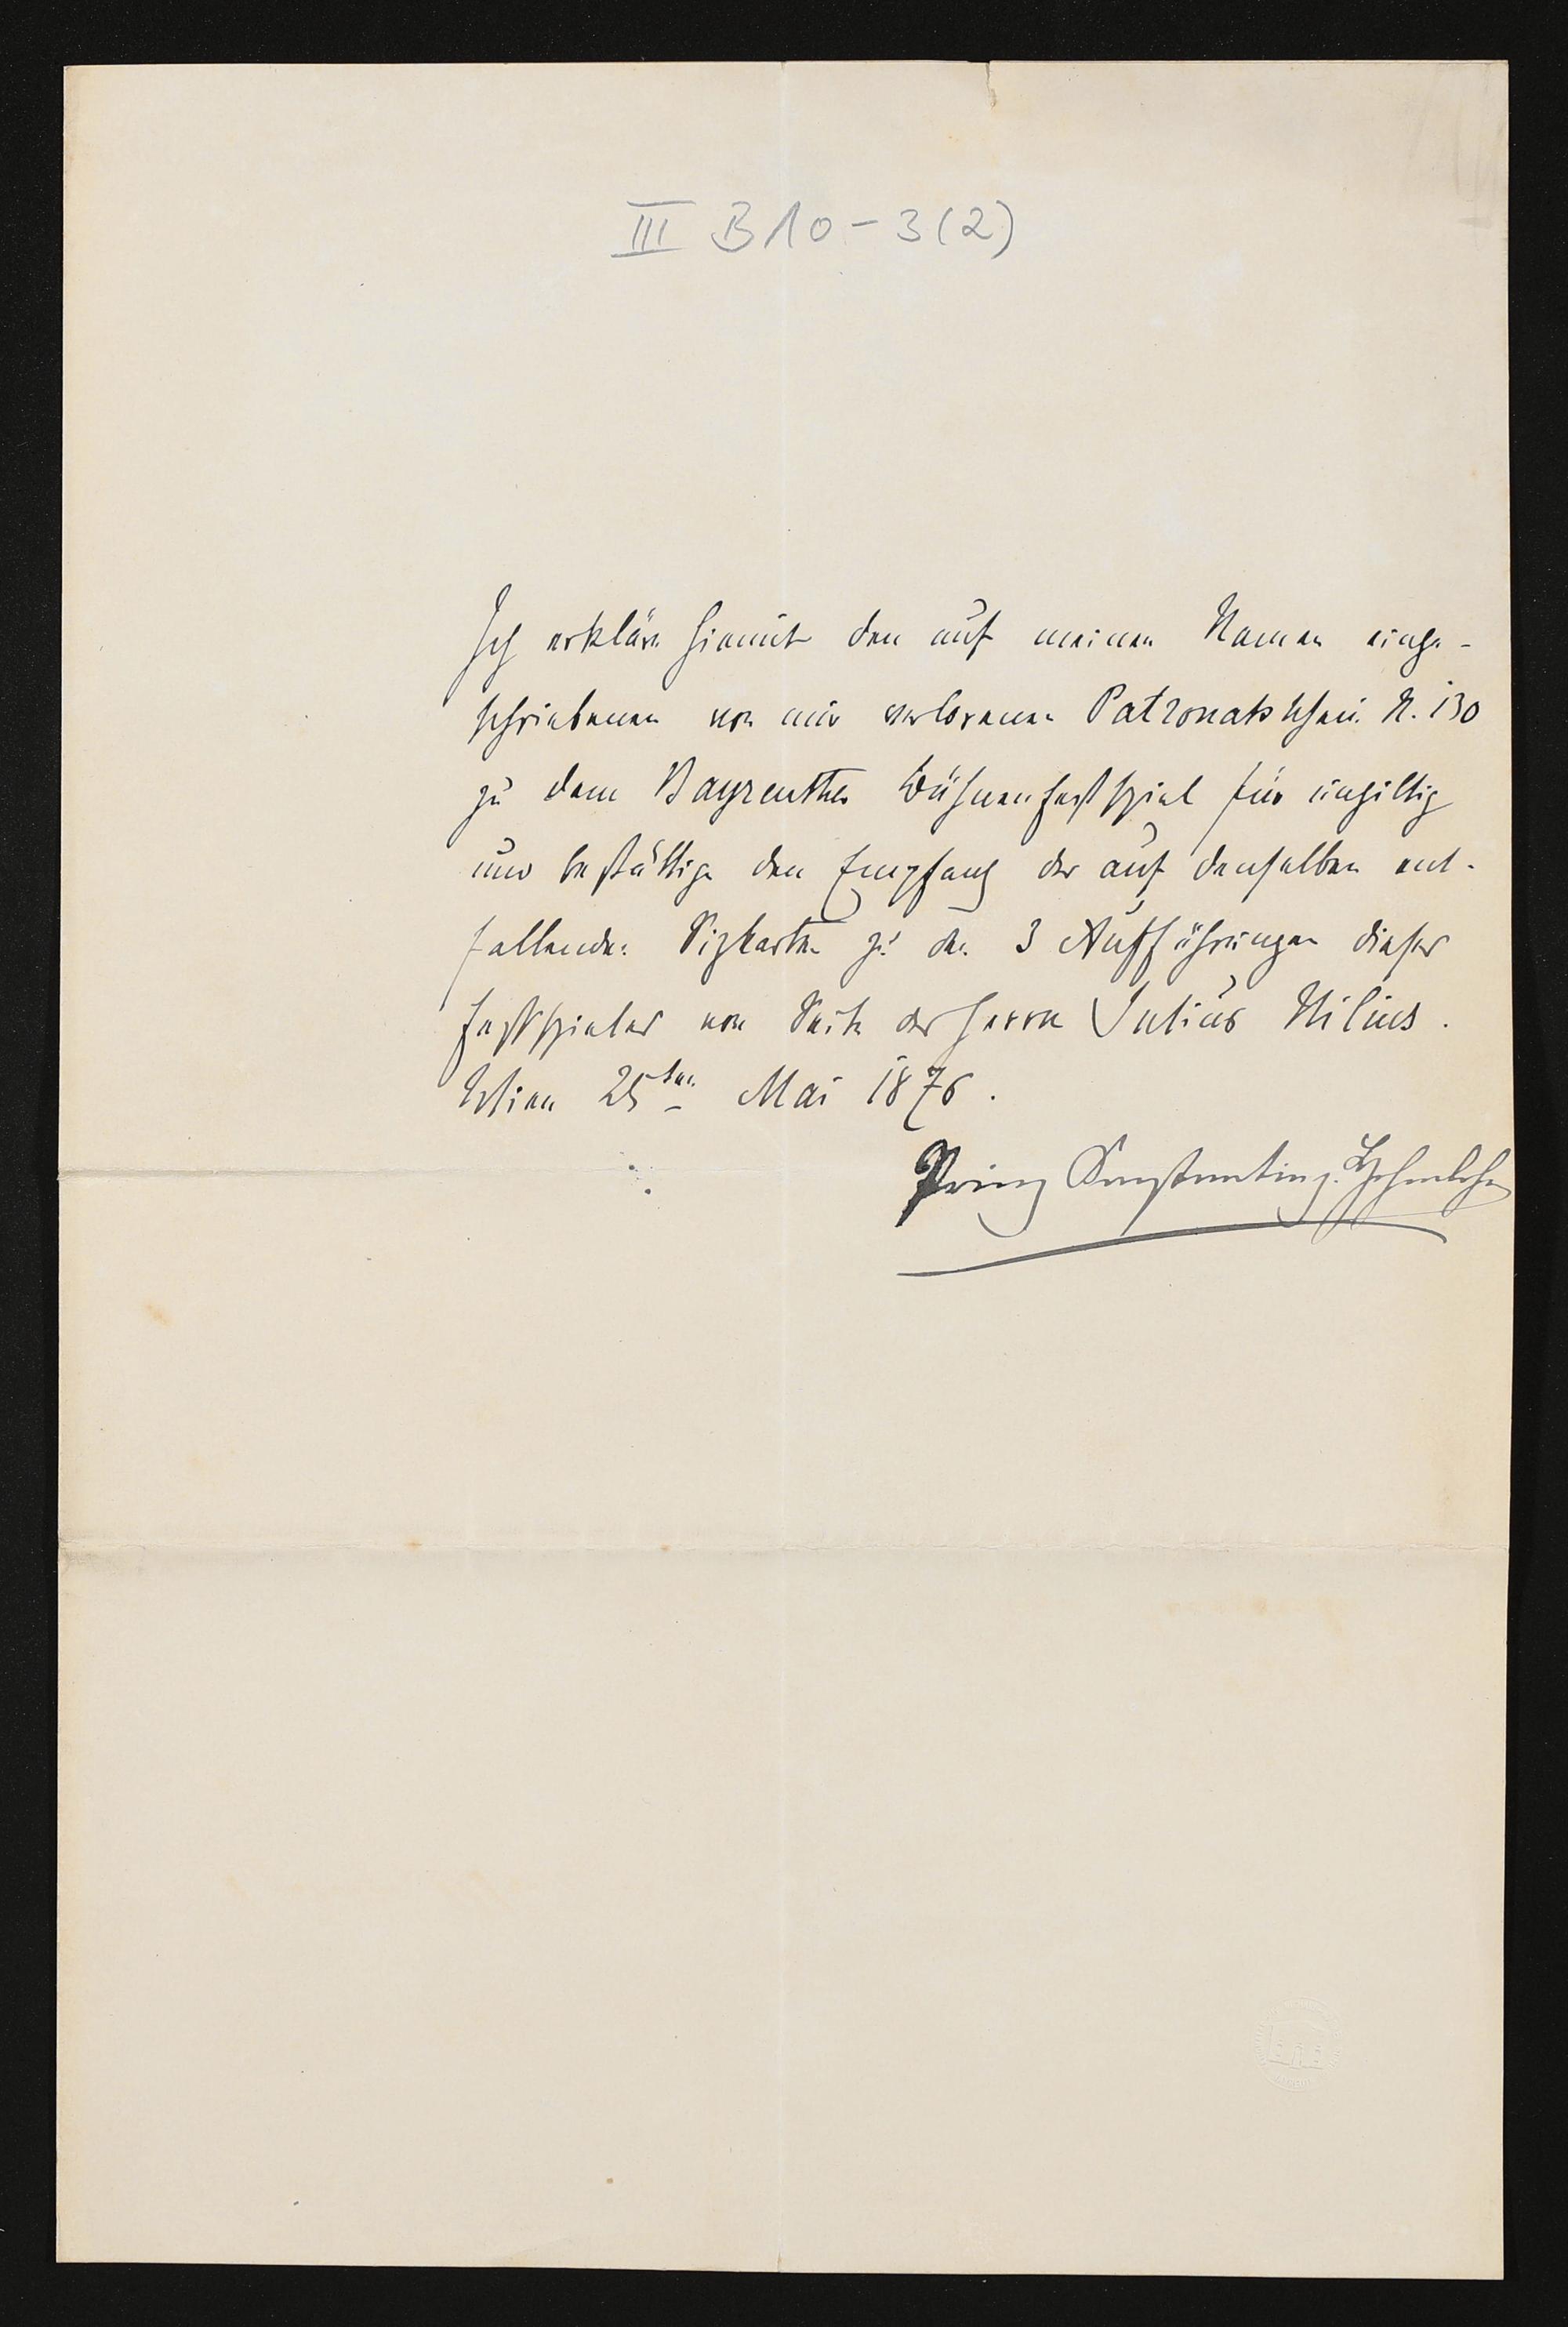 III B 10 - 3 (2)
Ich erkläre hiemit den auf meinen Namen einge-
schriebenen von mir verlorenen Patronatsschein N. 130
zu dem Bayreuther Bühnenfestspiel für ungiltig
und bestättige den Empfang der auf denselben ent-
fallenden Sizkarten zu den 3 Aufführungen dieser
Festspieles von Seite des Herrn Julius Nilius.
Wien 25ten Mai 1876.
Prinz Constantin z. Hohenlohe